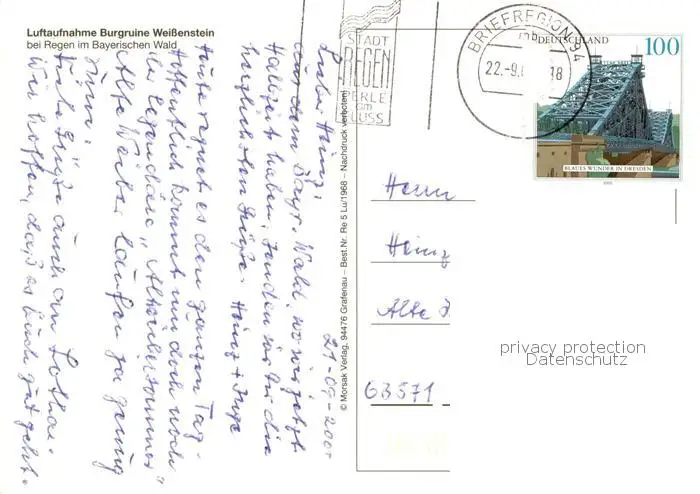 Luftaufnahme Burgruine Weißenstein
bei Regen im Bayerischen Wald
21-09-200
Lieber Heinz,
aus dem Bayr. Wald, wo wir jetzt
Halbzeit haben, senden wir Dir die
herzlichsten Grüße. Heinz + Inge
Heute regnet es den ganzen Tag.
Hoffentlich kommt nun doch noch
der legendäre „Altweibersommer"
Alte Weiber laufen ja genug
rum.
Viele Grüße auch an Lothar.
Wir hoffen, daß es Euch gut geht.
© Morsak Verlag, 94476 Grafenau – Best.Nr. Re 5 Lu/1968 – Nachdruck verboten!
STADT
REGEN
PERLE
am
FLUSS
BRIEFREGION 94
mb
22.-9.
18
DEUTSCHLAND
100
BLAUES WUNDER IN DRESDEN
Herrn
Heinz
Alte
63571
privacy protection
Datenschutz